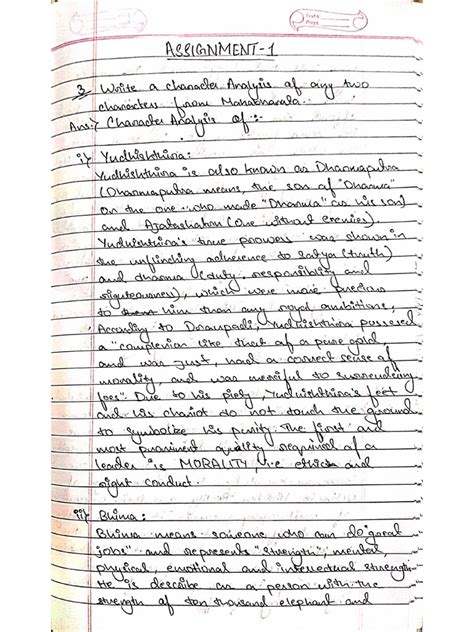 Date
Page
ASSIGNMENT-1
3. Write a character Analysis of any two
characters from Mahabharata.
Ans:-) Character Analysis of :-
i) Yudhishthira:
Yudhishthira is also known as Dharmaputra
(Dharmaputra means, the son of "Dharma"
Or the one who made "Dharma" as his son)
and Ajatashatru (one without enemies).
Yudhishthira's true prowess was shown in
the unflinching adherence to satya (truth)
and dharma (duty, responsibility and
righteousness), which were more precious
to him than any royal ambitions.
According to Draupadi, Yudhishthira possessed
a "complexion like that of a pure gold
and was just, had a correct sense of
morality, and was merciful to surrendering
foes". Due to his piety, Yudhishthira's feet
and his chariot do not touch the ground
to symbolize his purity. The first and
most prominent quality required of a
leader is MORALITY, i.e ethics and
right conduct.
ii) Bhima:
Bhima means someone who can do "great
jobs" and represents "strength", mental,
physical, emotional and intellectual strength.
He is describe as a person with the
strength of ten thousand elephant and